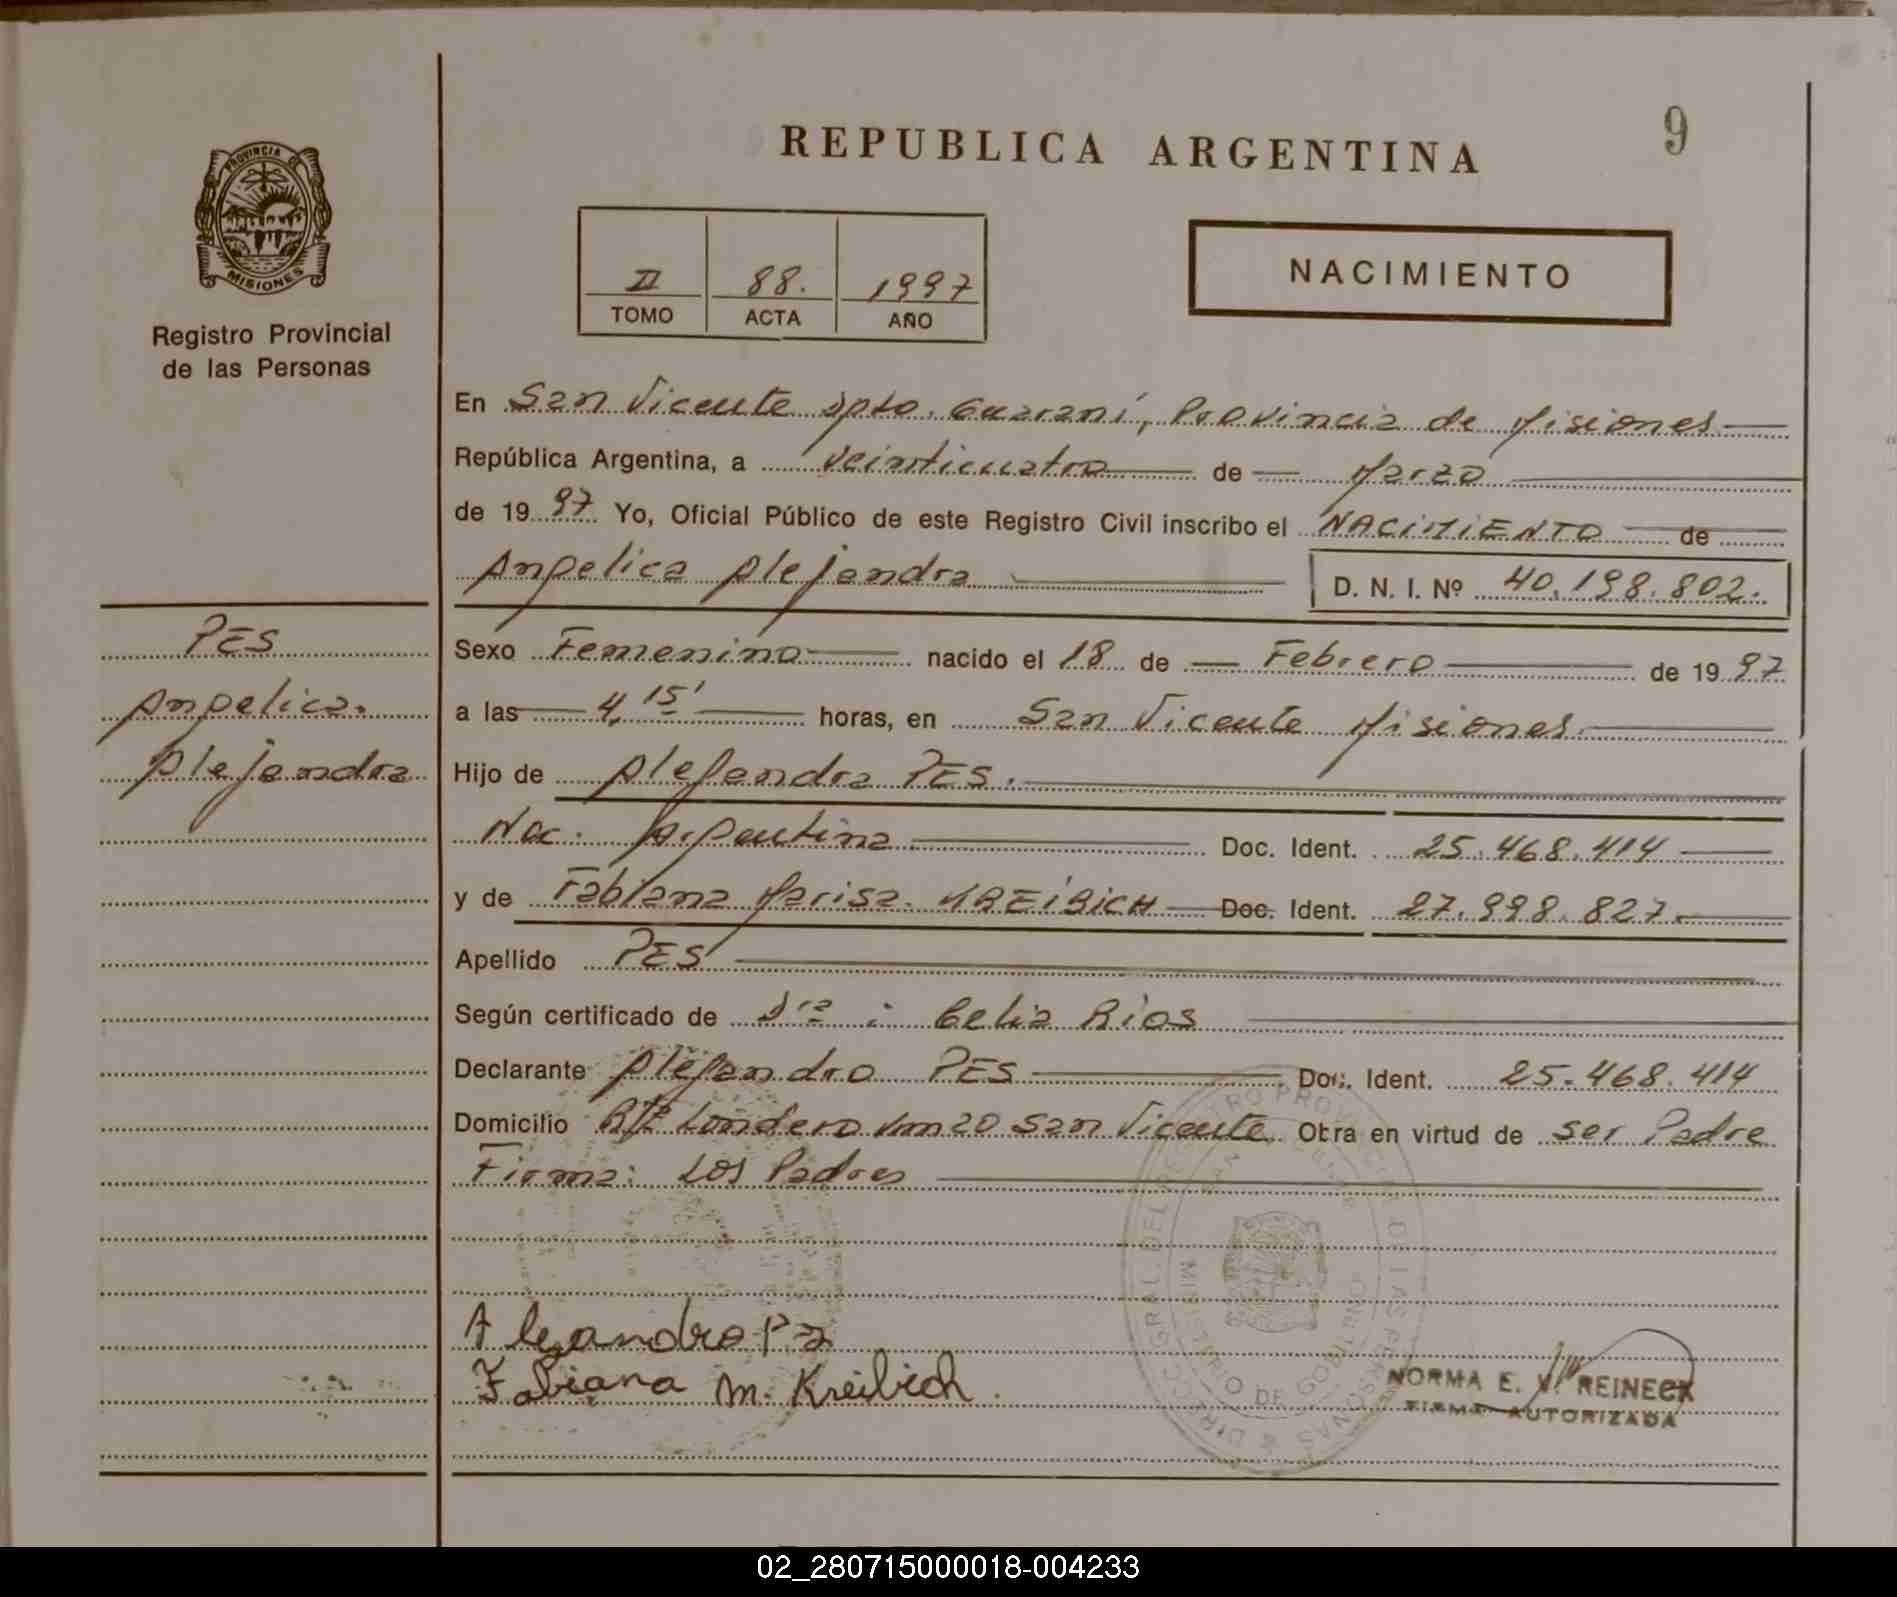 9
REPUBLICA ARGENTINA
PROVINCIA DE
MISIONES
Registro Provincial
de las Personas
II 88. 1997
TOMO ACTA AÑO
NACIMIENTO
En San Vicente Dpto. Guaraní, Provincia de Misiones
República Argentina, a veinticuatro de Marzo
de 1997 Yo, Oficial Público de este Registro Civil inscribo el NACIMIENTO de
Angelica Alejandra D. N. I. Nº 40.198.802.
PES
Angelica.
Alejandra
Sexo Femenino nacido el 18 de Febrero de 1997
a las 4,15' horas, en San Vicente Misiones
Hijo de Alejandra PES.
Nac. Argentina Doc. Ident. 25.468.414
y de Fabiana Marisa. KREIBICH Doc. Ident. 27.998.827.
Apellido PES
Según certificado de Dra: Celia Rios
Declarante Alejandro PES Doc. Ident. 25.468.414
Domicilio Londero Km 20 San Vicente Obra en virtud de ser Padre
Firma: Los Padres
DIRECC. GRAL. DEL REGISTRO PROVINCIAL DE LAS PERSONAS
MINISTERIO DE
Alejandro
Fabiana M. Kreibich.
NORMA E. V. REINECK
FIRMA AUTORIZADA
02_280715000018-004233